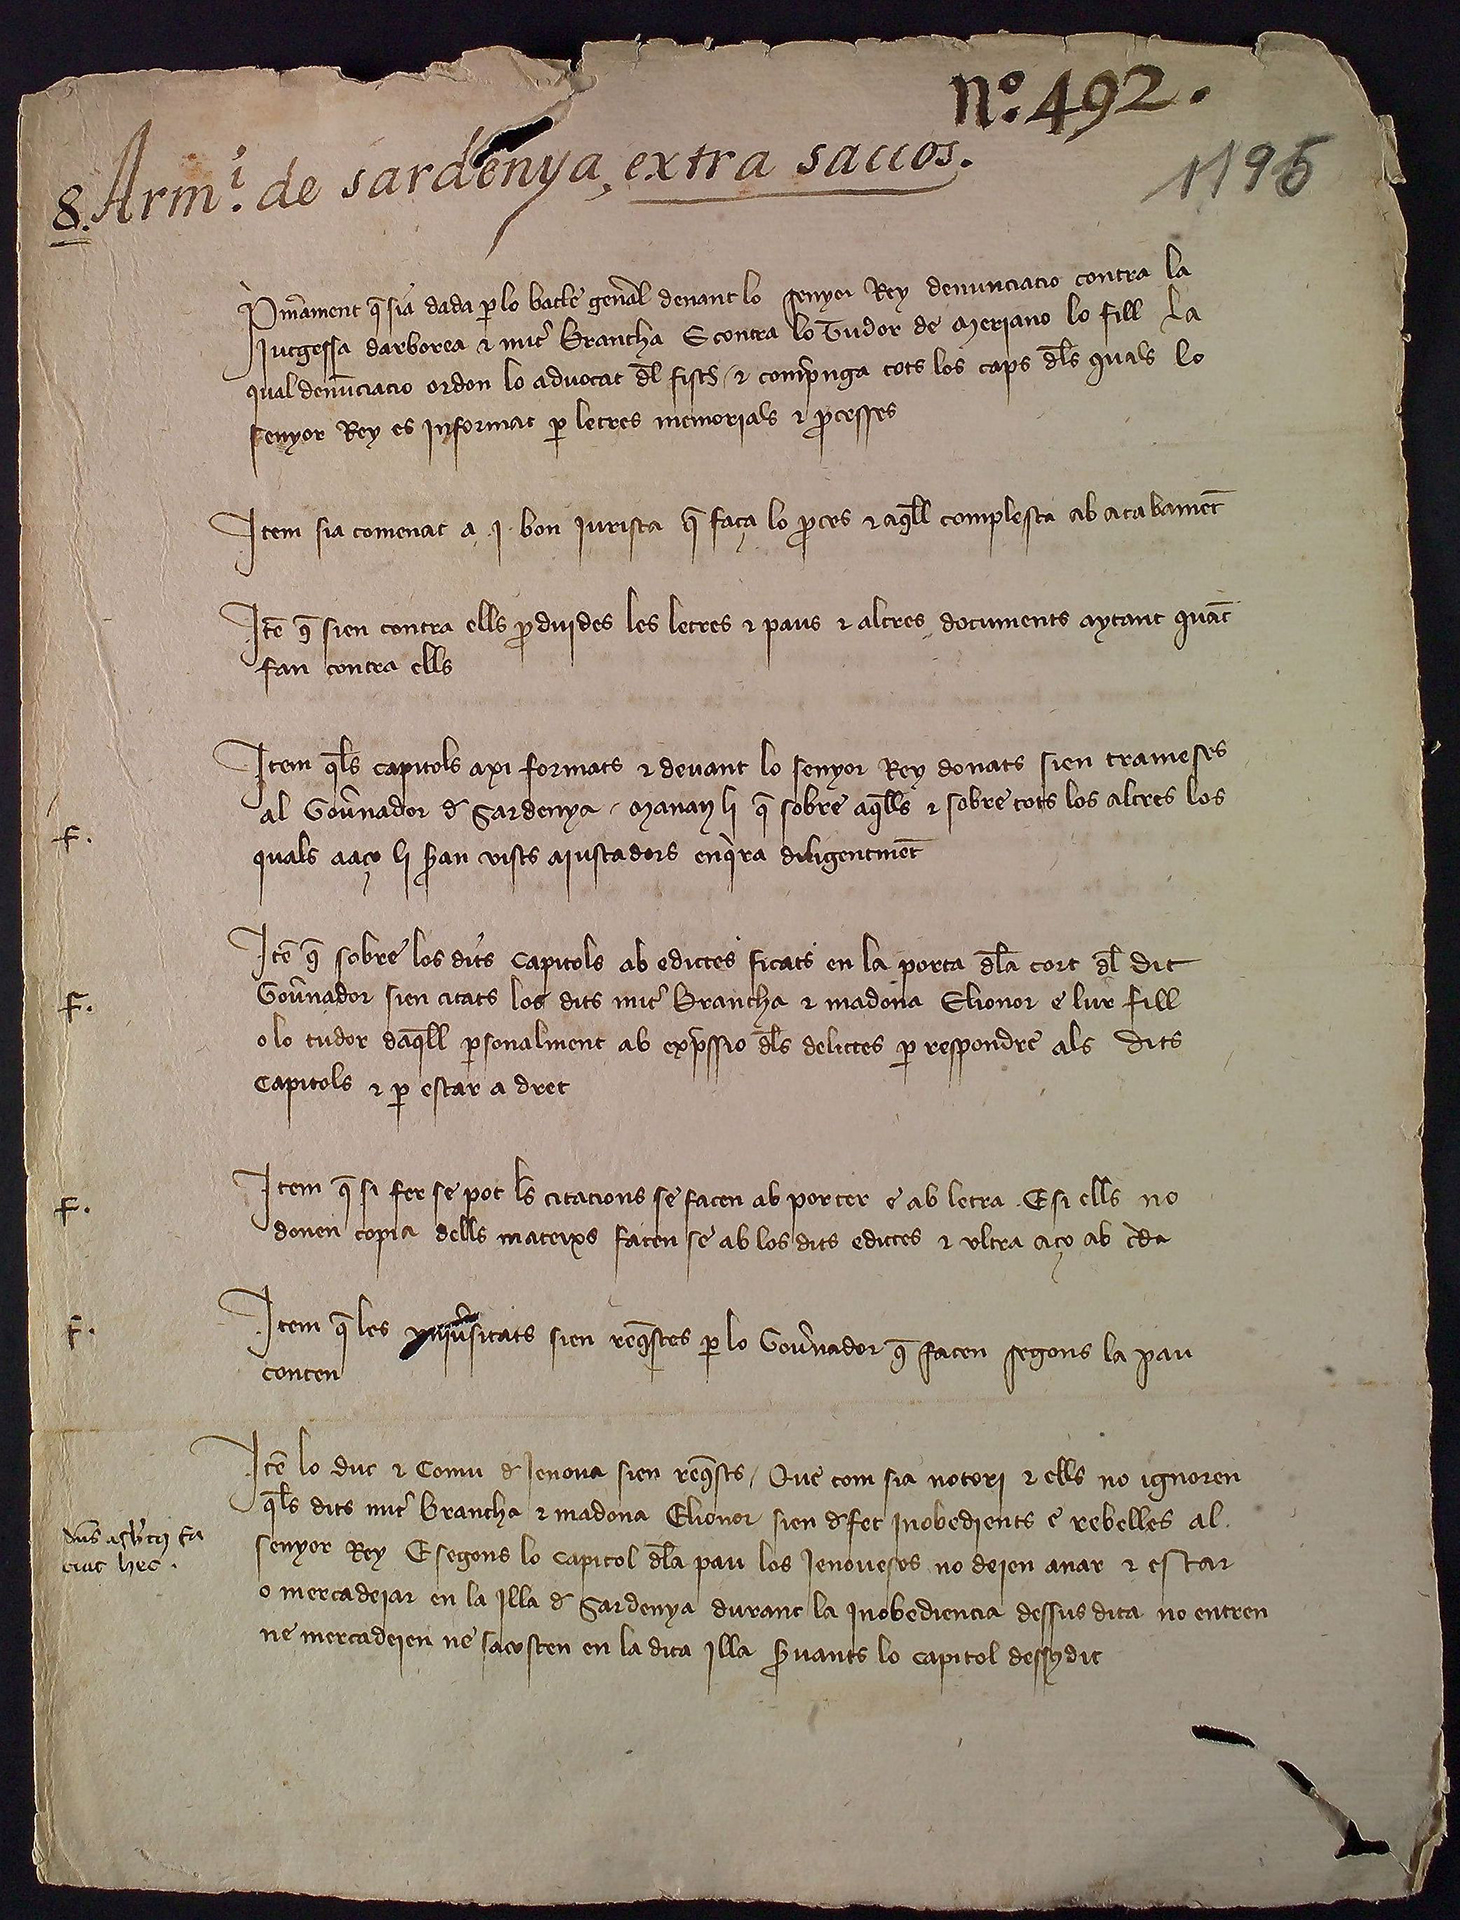 nº. 492.
8. Armi. de sardenya, extra saccos.
1195
Pmament q̃ sia dada p lo batle gen̄al denant lo senyor Rey denunciacio contra la
Jutgessa darborea ⁊ mic̃ Brancha E contra lo Tudor de Meriano lo fill La
qual denũciacio ordon lo advocat dl̄ fisch / ⁊ comp̃nga tots los caps dl̄s quals lo
senyor Rey es informat p letres memorials ⁊ p̱cesses
Item sia comenat a .I. bon Jurista q̃ faça lo p̱ces ⁊ aq̄ll complesta ab acabamēt
Itē q̃ sien contra ells p̱duides les letres ⁊ paus ⁊ altres documents aytant quāt
fan contra ells
Item q̄ls capitols axi formats ⁊ devant lo senyor Rey donats sien trameses
al Gov̄nador d̄ Sardenya / Manan li q̃ sobre aq̄lls ⁊ sobre tots los altres los
F.
quals aaço li s̄an vists aiustadors enq̃ra diligentmēt
Itē q̃ sobre los dits Capitols ab edictes ficats en la porta dl̄a cort dl̄ dit
F.
Gov̄nador sien citats los dits mic̃ Brancha ⁊ madona Elionor e lur fill
o lo tudor daq̄ll psonalment ab exp̃ssio dl̄s delictes p respondre als dits
Capitols ⁊ p estar a dret
Item q̃ si fer se pot ls̄ citacions se facen ab porter e ab letra . E si ells no
F.
donen copia dells mateixs facen se ab los dits edictes ⁊ ultra aço ab c̄da
Item q̃ les univ̄sitats sien req̃stes p lo Gov̄nador q̃ facen segons la pau
F.
conten
Itē lo duc ⁊ Comu d̄ Jenova sien req̃sts / Que com sia notori ⁊ ells no ignoren
q̄ls dits mic̃ Brancha ⁊ madona Elionor sien d̄ fet Inobedients e rebelles al
senyor Rey E segons lo capitol dl̄a pau los Jenoveses no deien anar ⁊ estar
o mercadeiar en la Illa d̄ Sardenya durant la Inobediencia dessus dita no entren
ne mercadeien ne sacosten en la dita Illa s̄vants lo capitol dessꝰdit